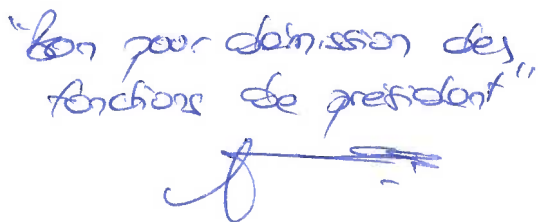 "Bon pour démission des
fonctions de président"